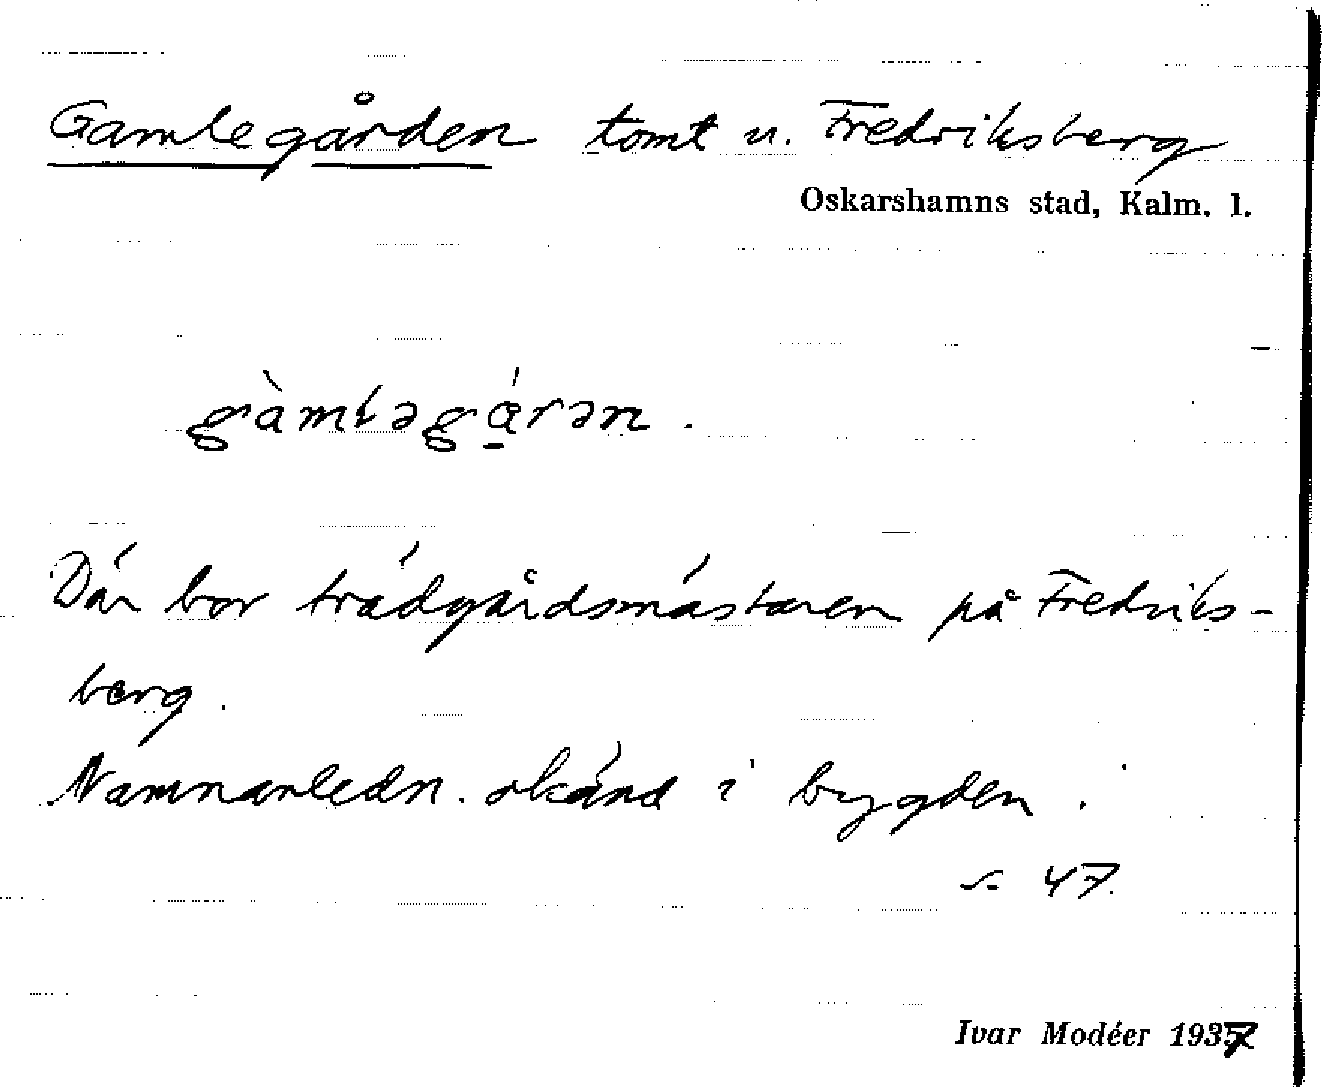 Gamlegården tomt u. Fredriksberg
Oskarshamns stad, Kalm. l.
gàmləgá̱rən.
Där bor trädgårdsmästaren på Fredriks-
berg.
Namnanledn. okänd i bygden.
s. 47.
Ivar Modéer 1937